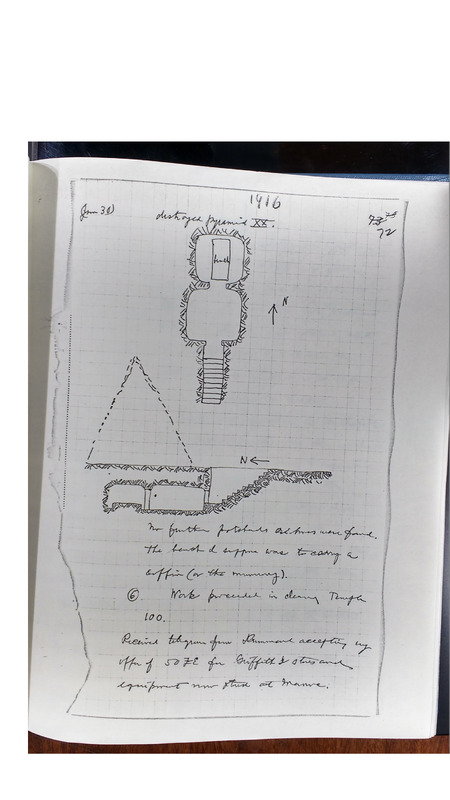 1916
Jan 31) destroyed pyramid XX.
73
72
bench
N
N
No further potsherds or bones were found.
The bench I suppose was to carry a
coffin (or the mummy).
⑥. Work proceeded in clearing Temple
100.
Received telegram from Drummond accepting my
offer of 50 £E for Griffith's stores and
equipment now stored at Merawe.